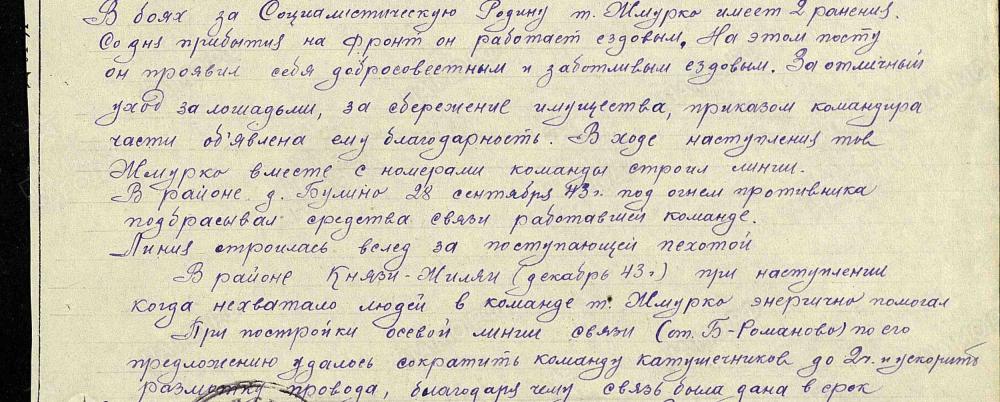 В боях за Социалистическую Родину т. Жмурко имеет 2 ранения.
Со дня прибытия на фронт он работает ездовым. На этом посту
он проявил себя добросовестным и заботливым ездовым. За отличный
уход за лошадьми, за сбережение имущества, приказом командира
части об'явлена ему благодарность. В ходе наступления тов
Жмурко вместе с номерами команды строил линии.
В районе д. Булино 28 сентября 43 г. под огнем противника
подбрасывал средства связи работавшей команде.
Линия строилась вслед за поступающей пехотой
В районе Князи-Жиляи (декабрь 43 г) при наступлении
когда нехватало людей в команде т. Жмурко энергично помогал
При постройки осевой линии связи (от. Б-Романово) по его
предложению удалось сократить команду катушечников до 2 ч. и ускорить
размотку провода, благодаря чему связь была дана в срок